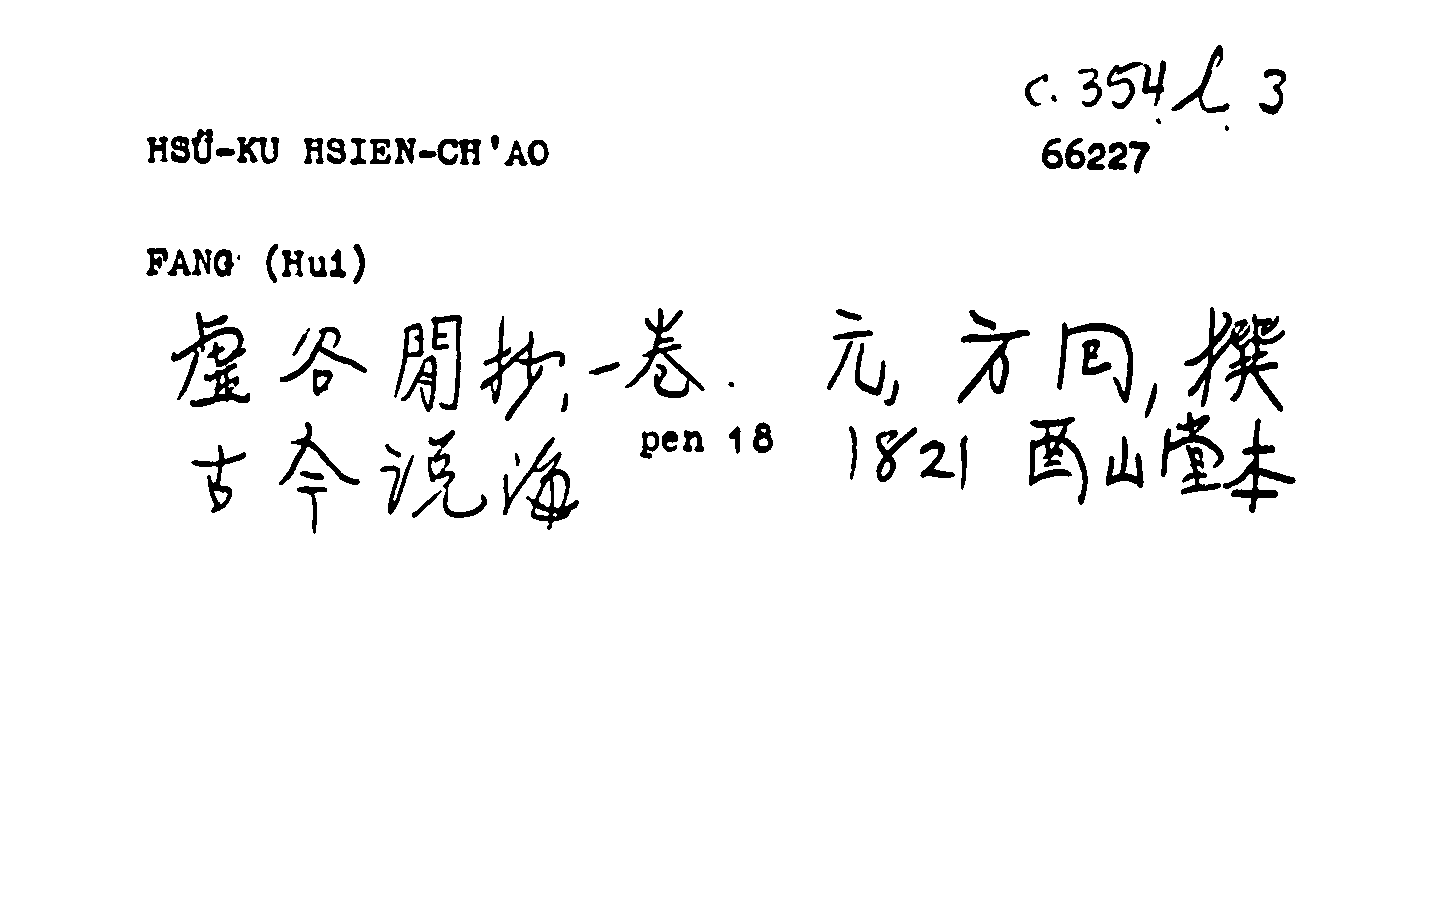 c. 354 l 3
HSÜ-KU HSIEN-CH'AO 66227
FANG (Hui)
虛谷閒抄, 一卷. 元, 方回, 撰
古今说海 pen 18 1821 酉山堂本